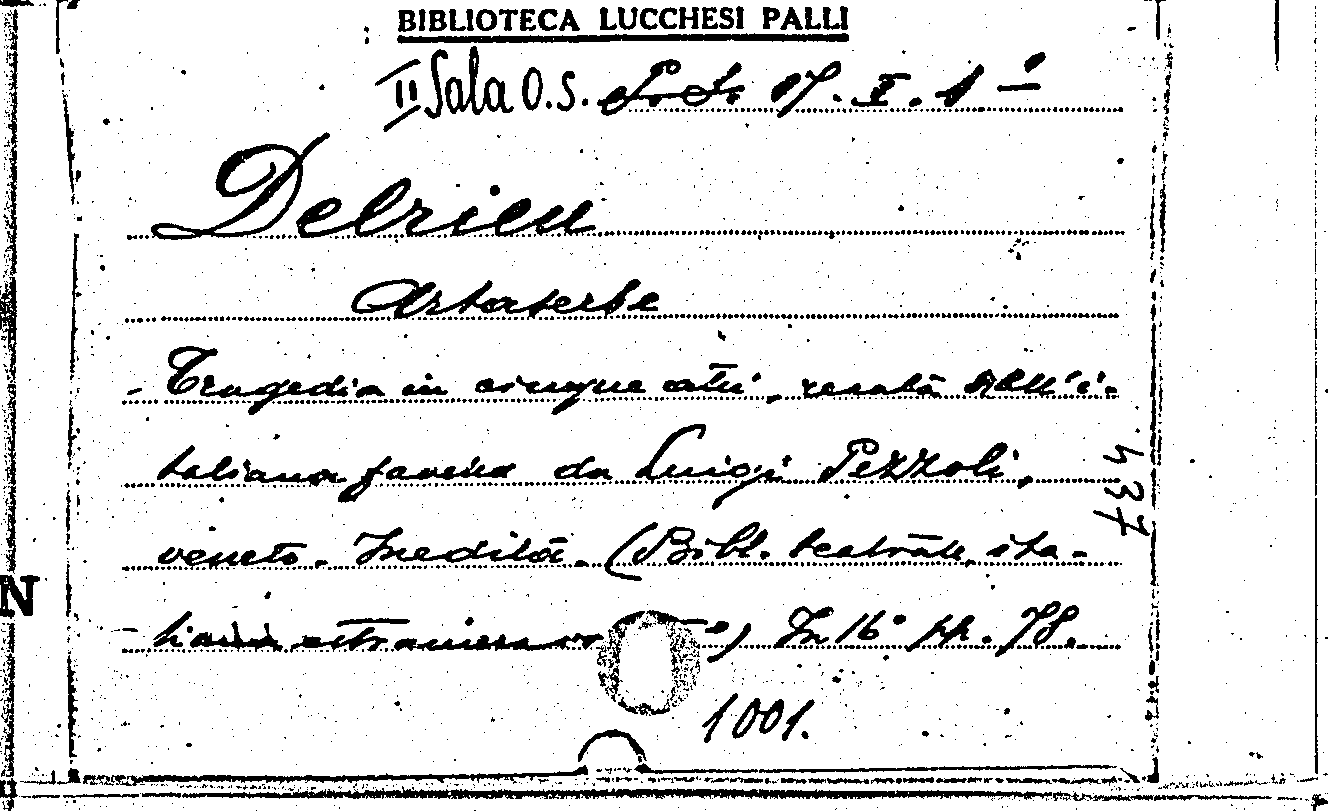 BIBLIOTECA LUCCHESI PALLI
II Sala O.S. 17. X. 1 º
Delrieu
Artaserse
Tragedia in cinque atti, recata all'i-
taliana favella da Luigi Pezzoli,
veneto. Inedita. (Bibl. teatrale ita-
liana e straniera) In 16º pp. 78.
1001.
437
N